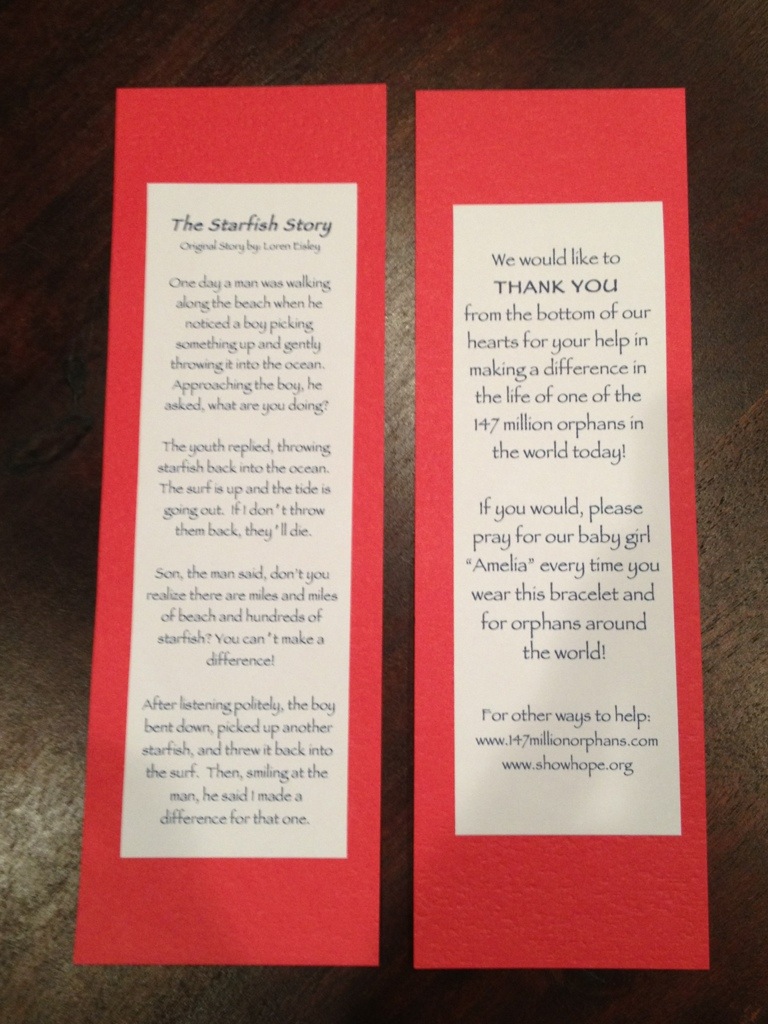 The Starfish Story
Original Story by: Loren Eisley
One day a man was walking
along the beach when he
noticed a boy picking
something up and gently
throwing it into the ocean.
Approaching the boy, he
asked, what are you doing?
The youth replied, throwing
starfish back into the ocean.
The surf is up and the tide is
going out. If I don't throw
them back, they'll die.
Son, the man said, don't you
realize there are miles and miles
of beach and hundreds of
starfish? You can't make a
difference!
After listening politely, the boy
bent down, picked up another
starfish, and threw it back into
the surf. Then, smiling at the
man, he said I made a
difference for that one.
We would like to
THANK YOU
from the bottom of our
hearts for your help in
making a difference in
the life of one of the
147 million orphans in
the world today!
If you would, please
pray for our baby girl
"Amelia" every time you
wear this bracelet and
for orphans around
the world!
For other ways to help:
www.147millionorphans.com
www.showhope.org